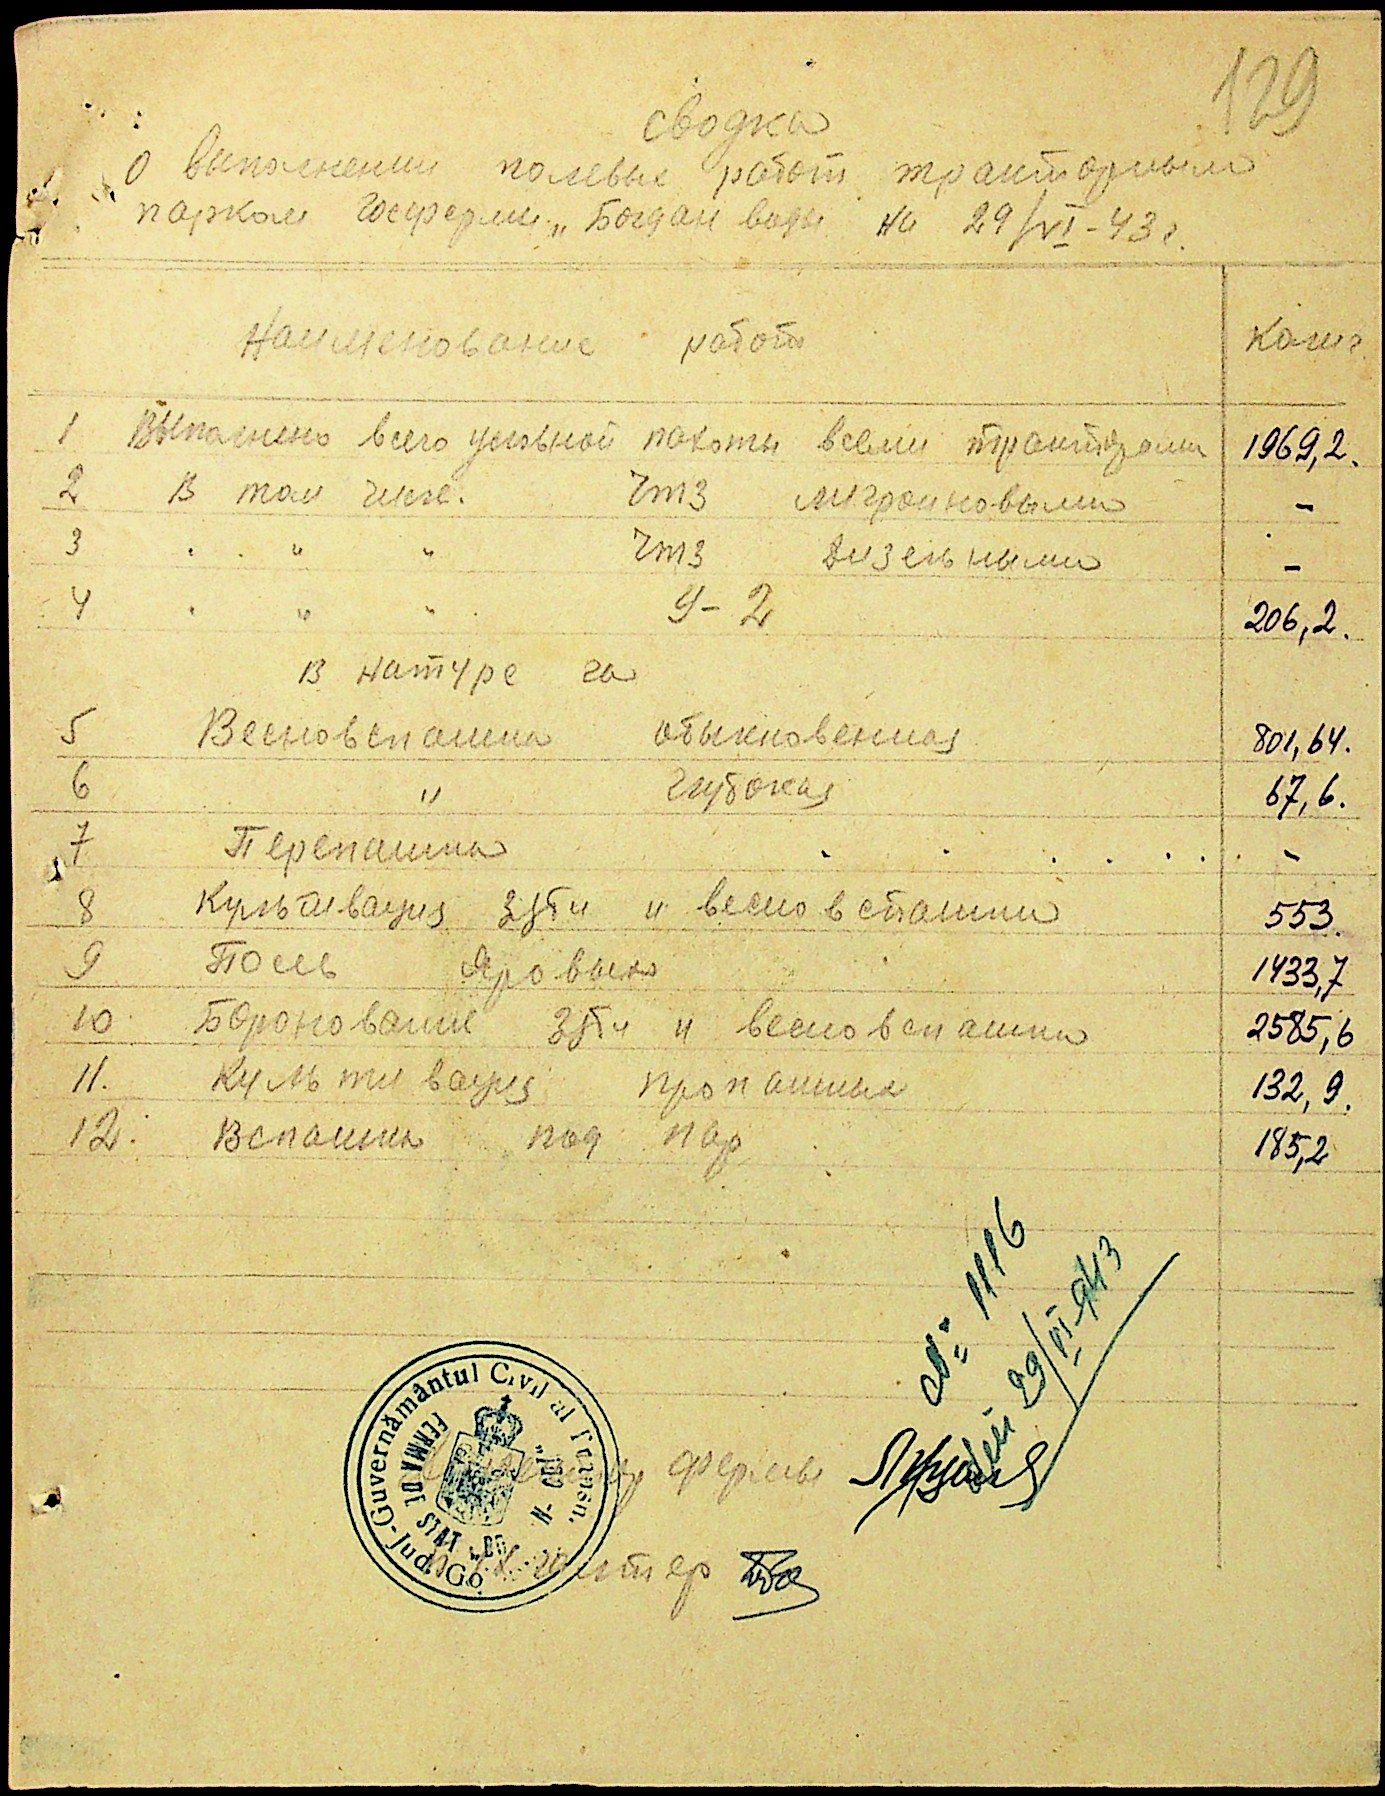 129
Сводка
о выполнении полевых работ тракторным
парком Госфермы „Богдан воды на 29/VI-43 г.
Наименование работ Колич
1 Выполнено всего условной пахоты всеми тракторами 1969,2.
2 В том числе. ЧТЗ лигроиновыми -
3 . . " " ЧТЗ Дизельными -
4 . " . У-2 206,2.
В натуре га
5 Весновспашка обыкновенная 801,64.
6 " глубокая 67,6.
7 Перепашка . . . . . . . -
8 Культивация зяби и весновспашки 553.
9 Посев Яровых 1433,7
10 Боронование зяби и весновспашки 2585,6
11. Культивация пропашных 132,9.
12. Вспашка под пар 185,2
№ 1116
29/VI-943
Guvernământul Civil al Transn.
Jud. Go
FERMA DE STAT
фермы